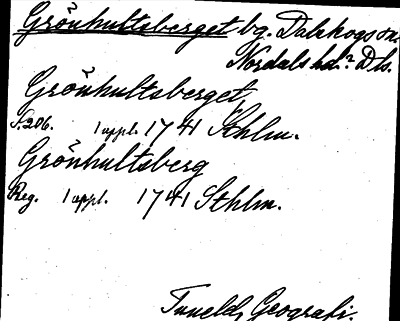 Grönhultsberget bg. Dalskogs sn.
Nordals hd. Dls.
Grönhultsberget,
S. 206. 1 uppl. 1741 Sthlm.
Grönhultsberg
Reg. 1 uppl. 1741 Sthlm.
Tunelds Geografi.